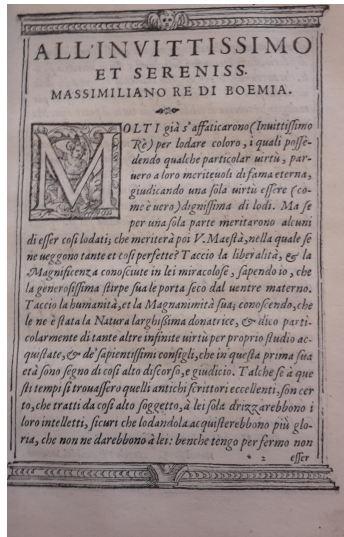 ALL'INVITTISSIMO
ET SERENISS.
MASSIMILIANO RE DI BOEMIA.
MOLTI già s'affaticarono (Inuittissimo
Rè) per lodare coloro, i quali posse-
dendo qualche particolar uirtù, par-
uero a loro meriteuoli di fama eterna,
giudicando una sola uirtù essere (co-
me è uero) dignissima di lodi. Ma se
per una sola parte meritarono alcuni
di esser così lodati; che meriterà poi V. Maestà, nella quale se
ne ueggono tante et così perfette? Taccio la liberalità, & la
Magnificenza conosciute in lei miracolose, sapendo io, che
la generosissima stirpe sua le porta seco dal uentre materno.
Taccio la humanità, et la Magnanimità sua; conoscendo, che
le ne è stata la Natura larghissima donatrice, & dico parti-
colarmente di tante altre infinite uirtù per proprio studio ac-
quistate, & de' sapientissimi consigli, che in questa prima sua
età sono segno di così alto discorso, e giudicio. Talche se à que
sti tempi si trouassero quelli antichi scrittori eccellenti, son cer
to, che tratti da così alto soggetto, à lei sola drizzarebbono i
loro intelletti, sicuri che lodandola acquisterebbono più glo-
ria, che non ne darebbono à lei: benche tengo per fermo non
* 2 esser